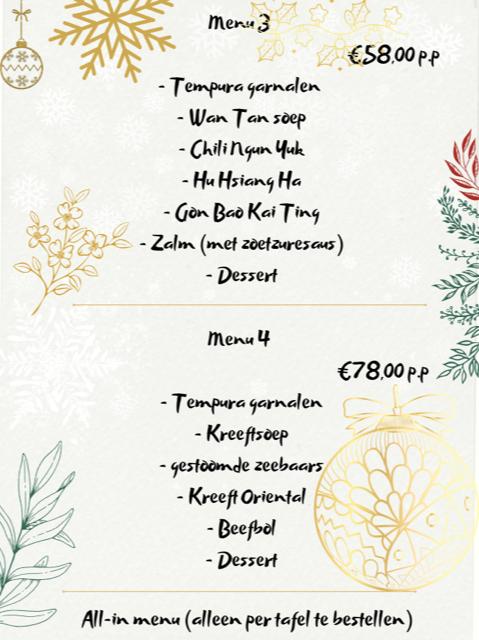 Menu 3
€58,00 p.p
- Tempura garnalen
- Wan Tan soep
- Chili Ngun Yuk
- Hu Hsiang Ha
- Gon Bao Kai Ting
- Zalm (met zoetzuresaus)
- Dessert
Menu 4
€78,00 p.p
- Tempura garnalen
- Kreeftsoep
- gestoomde zeebaars
- Kreeft Oriental
- Beefbol
- Dessert
All-in menu (alleen per tafel te bestellen)